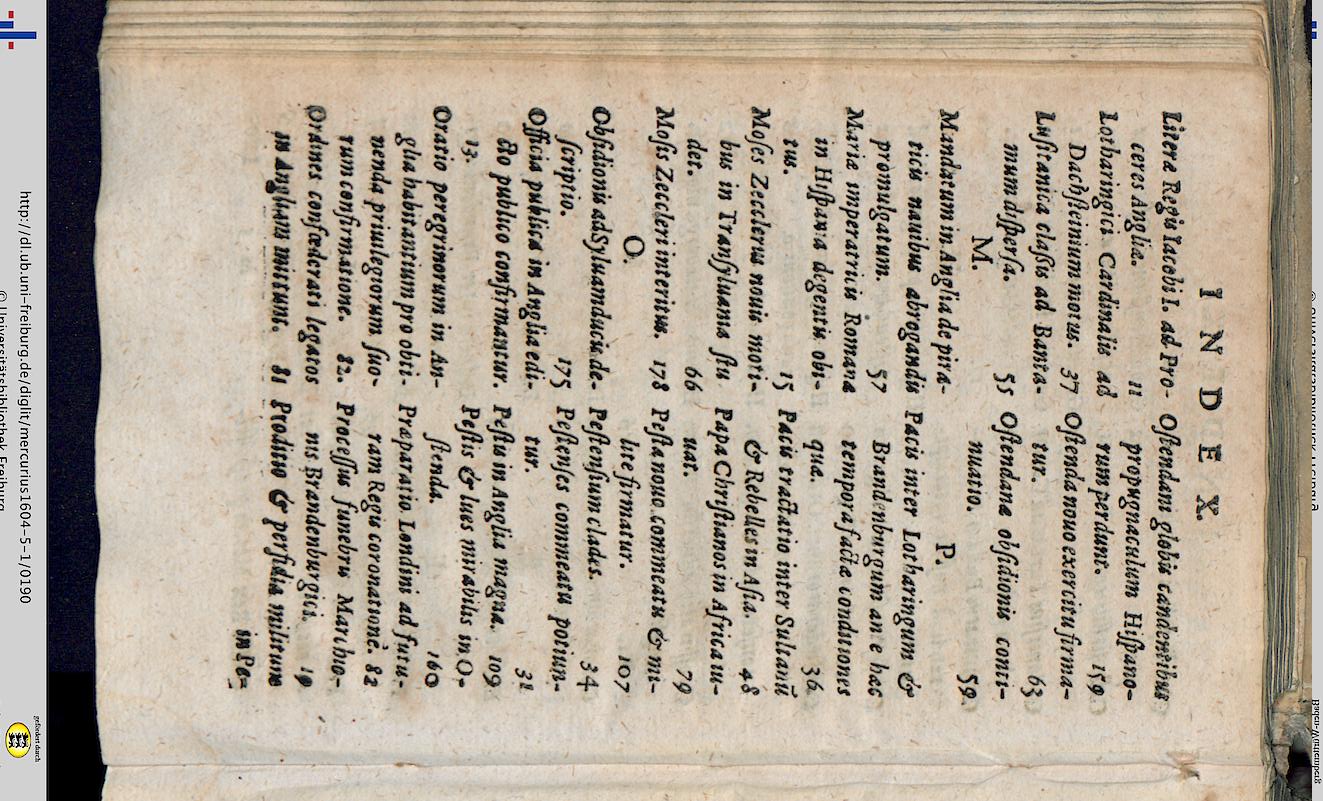 INDEX.
Literæ Regis Iacobi I. ad Pro-
ceres Angliæ. 11
Lotharingici Cardinalis ad
Dachsteinium motus. 37
Lusitanica classis ad Banta-
mum dispersa. 55
M.
Mandatum in Anglia de pira-
ticis nauibus abrogandis
promulgatum. 57
Mariæ imperatricis Romanæ
in Hispania degentis obi-
tus. 15
Moses Zecclerus nouis moti-
bus in Transyluania stu
det. 66
Mosis Zeccleri interitus. 178
O.
Obsidionis ad Syluamducis de-
scriptio. 175
Officia publica in Anglia edi-
cto publico confirmantur.
13.
Oratio peregrinorum in An-
glia habitantium pro obti-
nenda priuilegiorum suo-
rum confirmatione. 82.
Ordines confœderati legatos
in Angliam mittunt. 81
Ostendani globis candentibus
propugnaculum Hispano-
rum perdunt. 159
Ostenda nouo exercitu firma-
tur. 63
Ostendanæ obsidionis conti-
nuatio. 59.
P.
Pacis inter Lotharingum &
Brandenburgum ante hac
tempora factæ conditiones
quæ. 36
Pacis tractatio inter Sultanū
& Rebelles in Asia. 48
Papa Christianos in Africa iu-
uat. 79
Pesta nouo commeatu & mi-
lite firmatur. 107
Pestensium clades. 34
Pestenses commeatu potiun-
tur. 31
Pestis in Anglia magna. 109
Pestis & lues mirabilis in O-
stenda. 160
Præparatio Londini ad futu-
ram Regis coronationē. 82
Processus funebris Marchio-
nis Brandenburgici. 19
Proditio & perfidia militum
in Pe-
http://dl.ub.uni-freiburg.de/diglit/mercurius1604-5-1/0190
© Universitätsbibliothek Freiburg
gefördert durch